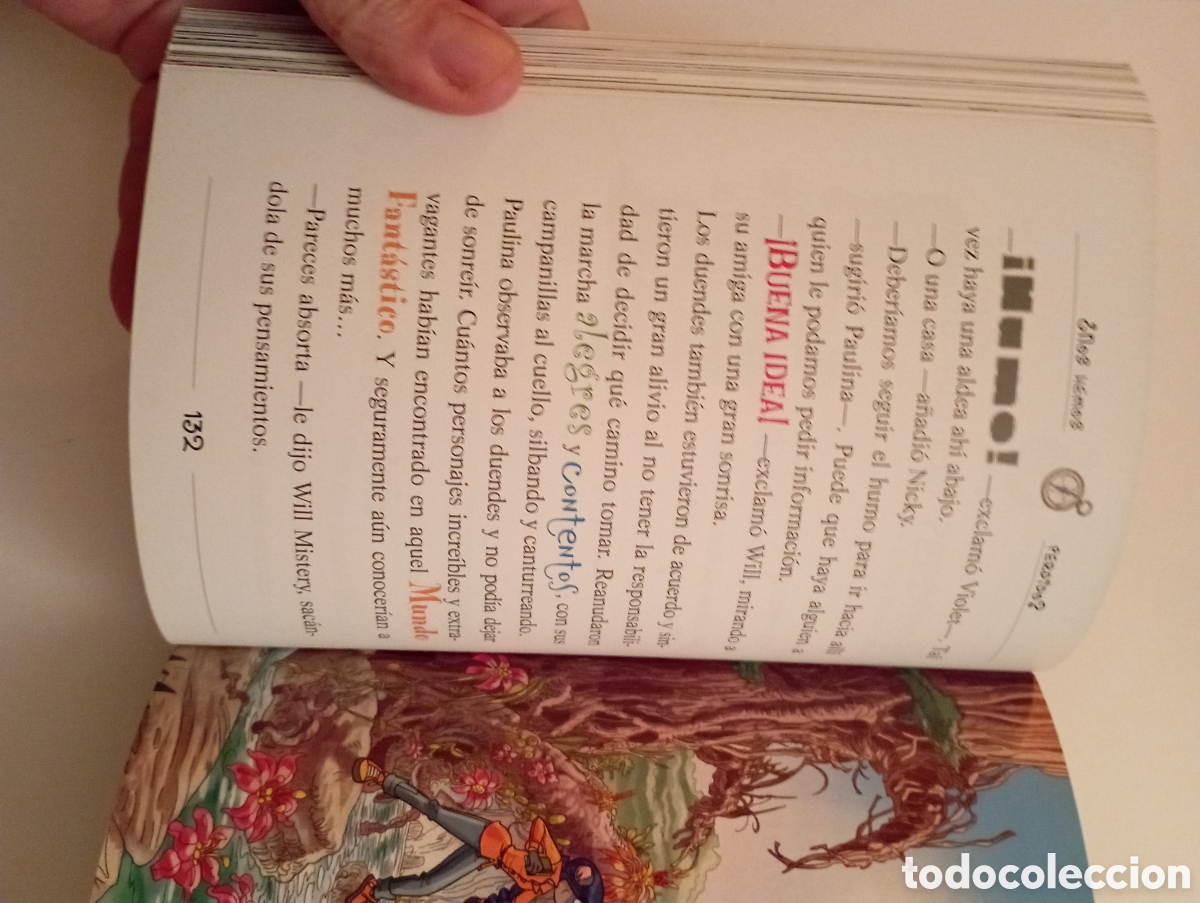 ¿NOS HEMOS PERDIDO?
—¡Humo! —exclamó Violet—. Tal
vez haya una aldea ahí abajo.
—O una casa —añadió Nicky.
—Deberíamos seguir el humo para ir hacia allí
—sugirió Paulina—. Puede que haya alguien a
quien le podamos pedir información.
—¡BUENA IDEA! —exclamó Will, mirando a
su amiga con una gran sonrisa.
Los duendes también estuvieron de acuerdo y sin-
tieron un gran alivio al no tener la responsabili-
dad de decidir qué camino tomar. Reanudaron
la marcha alegres y contentos, con sus
campanillas al cuello, silbando y canturreando.
Paulina observaba a los duendes y no podía dejar
de sonreír. Cuántos personajes increíbles y extra-
vagantes habían encontrado en aquel Mundo
Fantástico. Y seguramente aún conocerían a
muchos más...
—Pareces absorta —le dijo Will Mistery, sacán-
dola de sus pensamientos.
132
todocoleccion